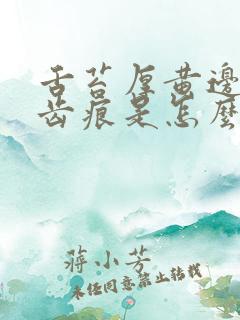 舌苔厚黄边
齿痕是怎麽
蒋小芳
未经同意禁止转载